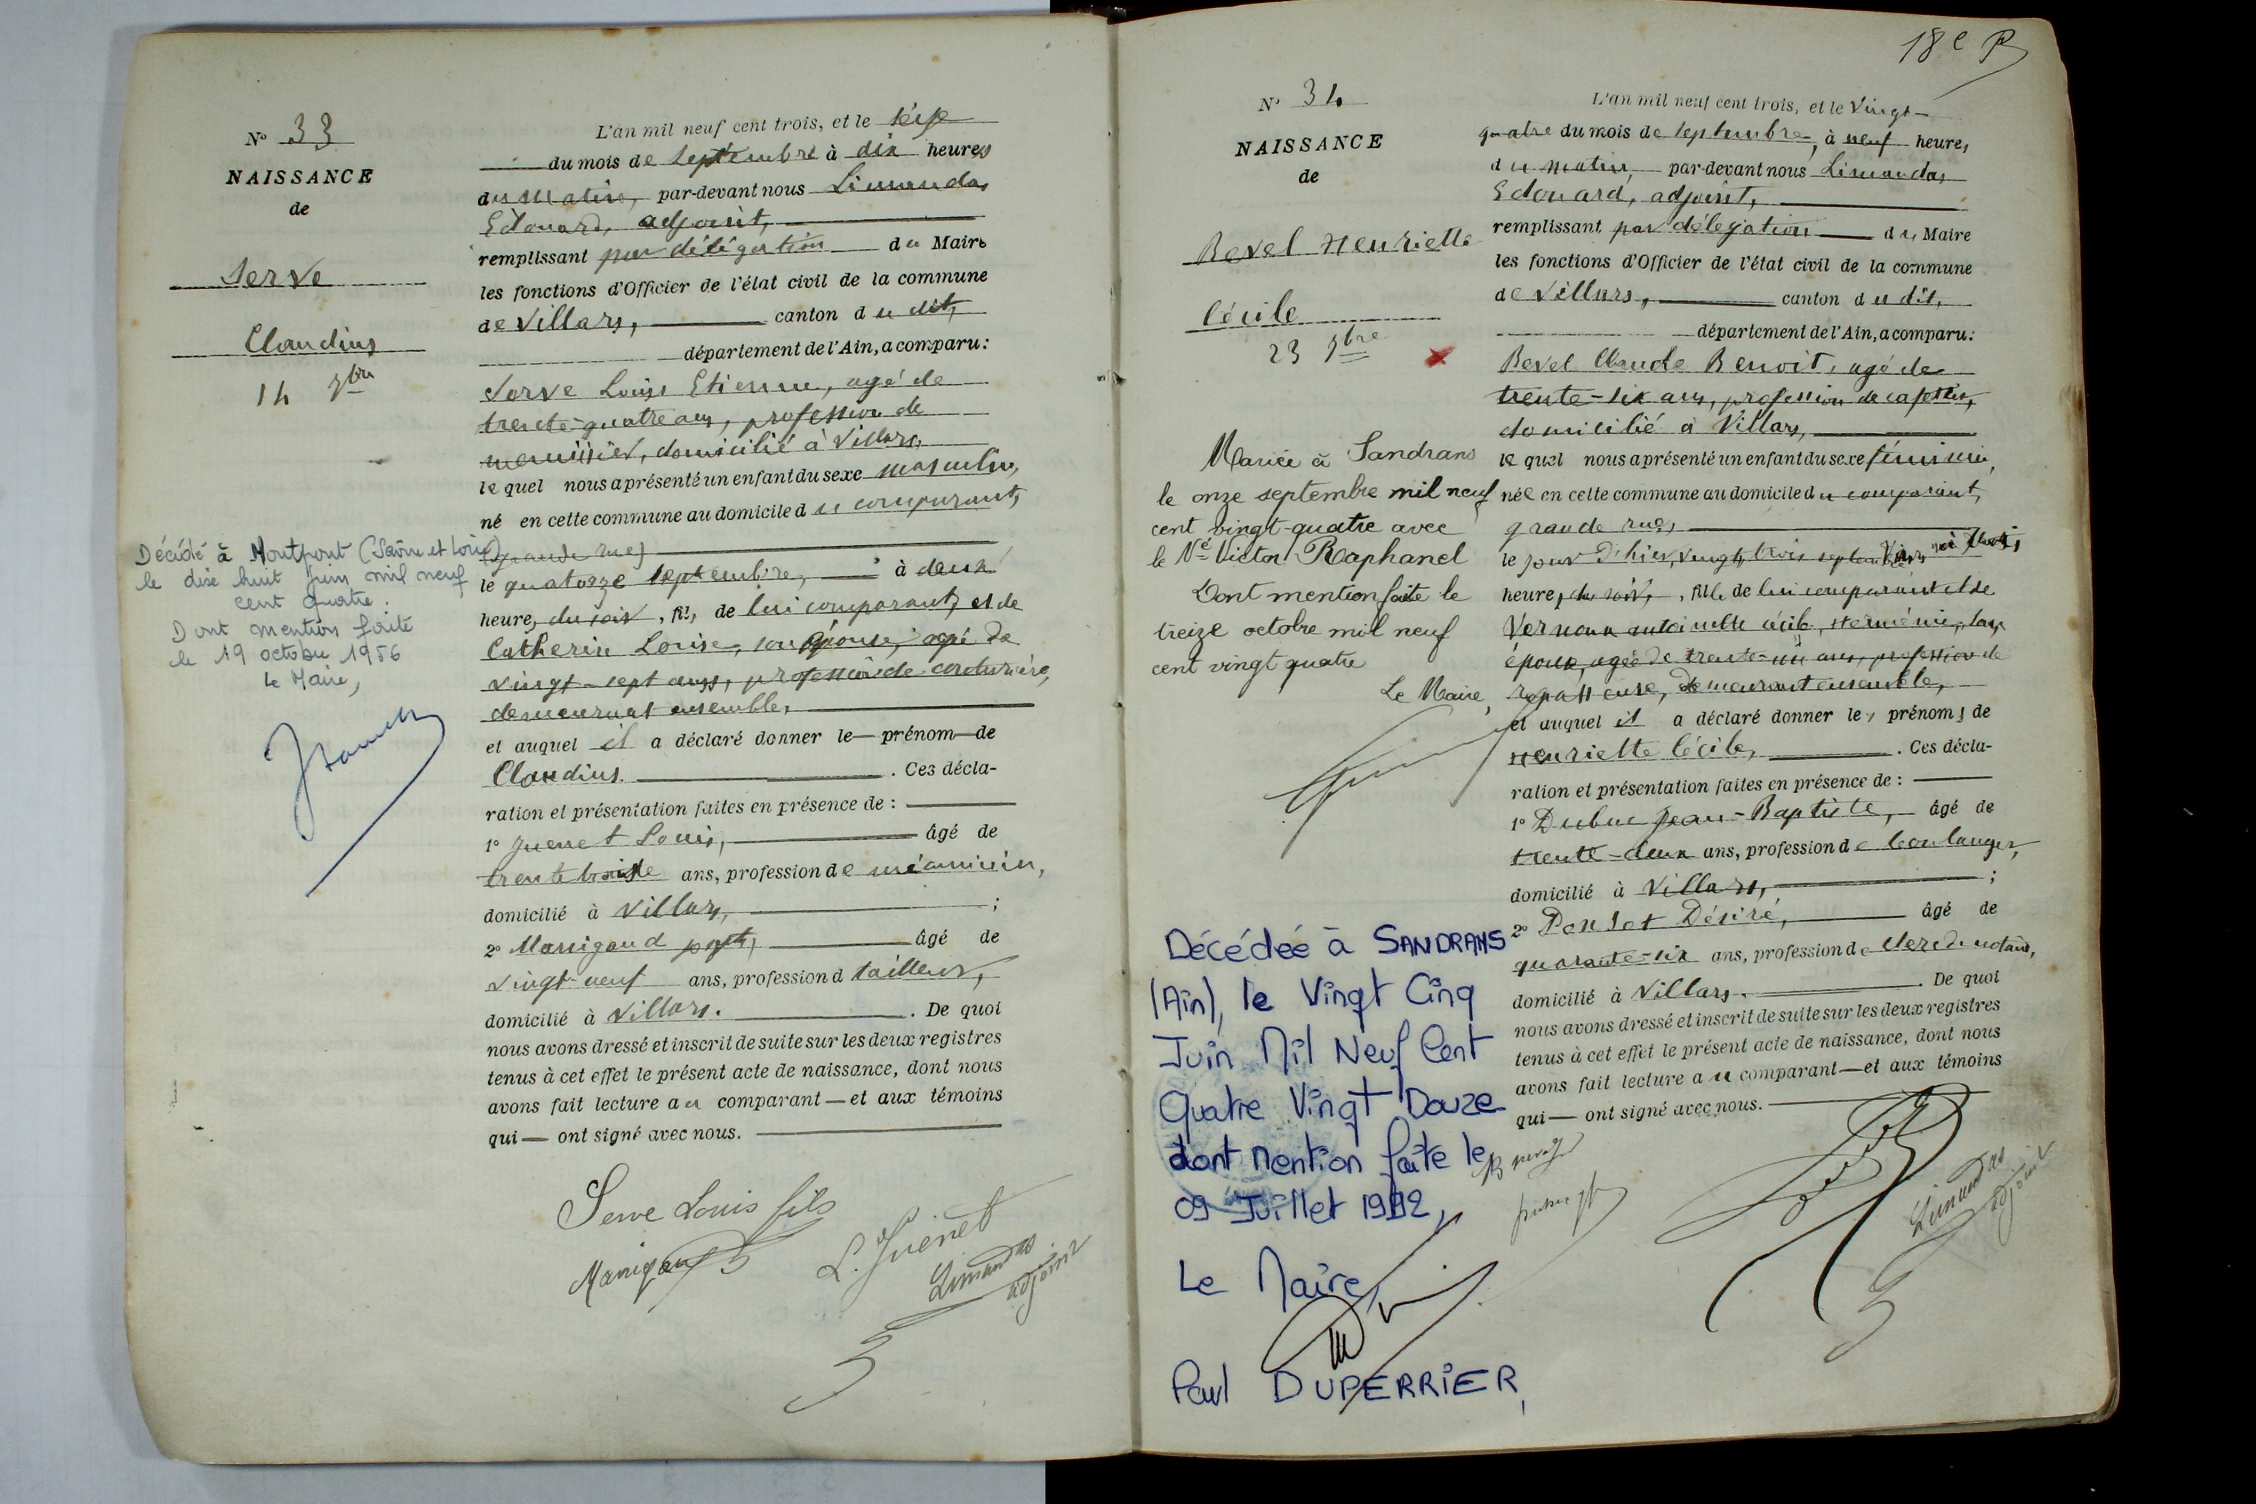 N° 33
NAISSANCE
de
Serve
Claudius
14 7bre
Décédé à Montpont (Saône et Loire)
le dix huit juin mil neuf
cent quatre.
Dont mention faite
le 19 octobre 1956
Le Maire,
L'an mil neuf cent trois, et le seize
du mois de septembre à dix heures
du matin, par-devant nous Limandas
Edouard, adjoint,
remplissant par délégation du Maire
les fonctions d'Officier de l'état civil de la commune
de Villars, canton du dit,
département de l'Ain, a comparu:
Serve Louis Etienne, agé de
trente-quatre ans, profession de
menuisier, domicilié à Villars,
lequel nous a présenté un enfant du sexe masculin,
né en cette commune au domicile du comparant,
(grande rue)
le quatorze septembre, à deux
heures du soir, fils de lui comparant, et de
Catherin Louise, son épouse, agée de
vingt-sept ans, profession de couturière,
demeurant ensemble,
et auquel il a déclaré donner le prénom de
Claudius. Ces décla-
ration et présentation faites en présence de :
1° Guenet Louis, âgé de
trente ans, profession de mécanicien,
domicilié à Villars, ;
2° Manigand âgé de
vingt-neuf ans, profession d tailleur,
domicilié à Villars. De quoi
nous avons dressé et inscrit de suite sur les deux registres
tenus à cet effet le présent acte de naissance, dont nous
avons fait lecture au comparant — et aux témoins
qui — ont signé avec nous.
Serve Louis fils
Manigand L. Guenet
Limandas
adjoint
18e
N° 34
NAISSANCE
de
Revel Henriette
Cécile
23 7bre
Mariée à Sandrans
le onze septembre mil neuf
cent vingt-quatre avec
le Né Victor Raphanel
Dont mention faite le
treize octobre mil neuf
cent vingt quatre
Le Maire,
Décédée à SANDRANS
(Ain), le Vingt Cinq
Juin Mil Neuf Cent
Quatre Vingt Douze
dont Mention faite le
09 Juillet 1992,
Le Maire,
Paul DUPERRIER,
L'an mil neuf cent trois, et le vingt-
quatre du mois de septembre, à neuf heures
du matin, par-devant nous Limandas
Edouard, adjoint,
remplissant par délégation du Maire
les fonctions d'Officier de l'état civil de la commune
de Villars, canton du dit,
département de l'Ain, a comparu:
Revel Claude Benoit, agé de
trente-six ans, profession de cafetier,
domicilié à Villars,
lequel nous a présenté un enfant du sexe féminin,
née en cette commune au domicile du comparant,
grande rue,
le jour d'hier, vingt trois septembre,
heures du soir, fille de lui comparant et de
Vernoux sa
épouse, agée de trente-un ans, profession de
repasseuse, demeurant ensemble,
et auquel il a déclaré donner les prénoms de
Henriette Cécile, Ces décla-
ration et présentation faites en présence de :
1° Dubuc Jean-Baptiste, âgé de
trente-deux ans, profession de boulanger,
domicilié à Villars, ;
2° Ponsot Désiré, âgé de
quarante-six ans, profession de clerc de notaire,
domicilié à Villars. De quoi
nous avons dressé et inscrit de suite sur les deux registres
tenus à cet effet le présent acte de naissance, dont nous
avons fait lecture au comparant — et aux témoins
qui — ont signé avec nous.
Limandas
adjoint